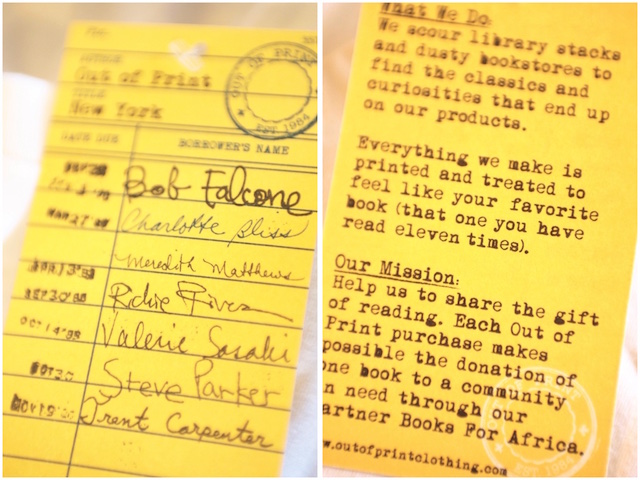 AUTHOR
Out of Print
TITLE
New York
OUT OF PRINT
EST 1984
DATE DUE
BORROWER'S NAME
Bob Falcone
MAR 27
Charlotte Bliss
Meredith Matthews
SEP 30 '85
Richie Rivera
OCT 14 '88
Valerie Sasaki
OCT 30
Steve Parker
NOV 19
Trent Carpenter
What We Do
We scour library stacks
and dusty bookstores to
find the classics and
curiosities that end up
on our products.
Everything we make is
printed and treated to
feel like your favorite
book (that one you have
read eleven times).
Our Mission:
Help us to share the gift
of reading. Each Out of
Print purchase makes
possible the donation of
one book to a community
n need through our
artner Books For Africa.
www.outofprintclothing.com